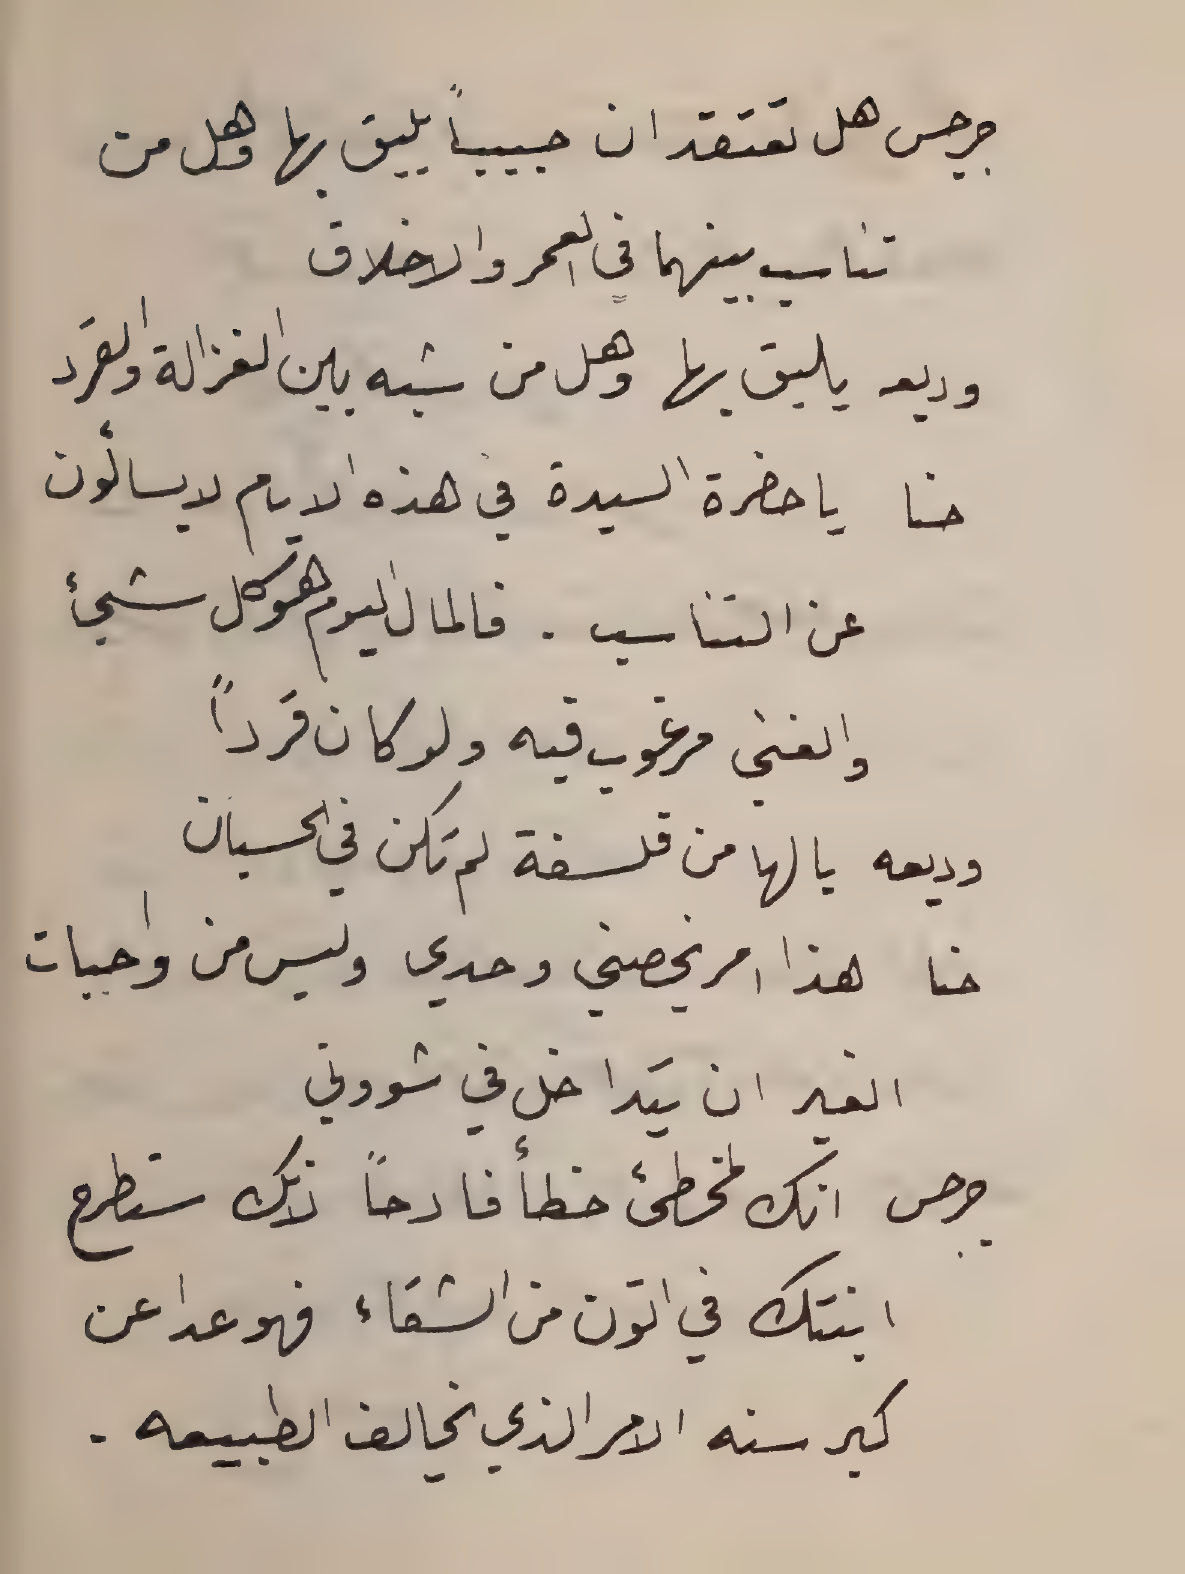 جرجس هل تعتقد ان حبيباً يليق بها وهل من
تناسب بينهما في العمر والاخلاق
وديعه يليق بها وهل من شبه بين الغزالة والقرد
حنا ياحضرة السيدة في هذه الايام لايسألون
عن التناسب . فالمال اليوم هو كل شيئ
والغني مرغوب فيه ولو كان قرداً
وديعه يالها من فلسفة لم تكن في الحسبان
حنا هذا امر يخصني وحدي وليس من واجبات
الغير ان يتداخل في شووني
جرجس انك لمخطئ خطأ فادحاً لانك ستطرح
ابنتك في اتون من الشقاء فهو عدا عن
كبر سنه الامر الذي يخالف الطبيعه .